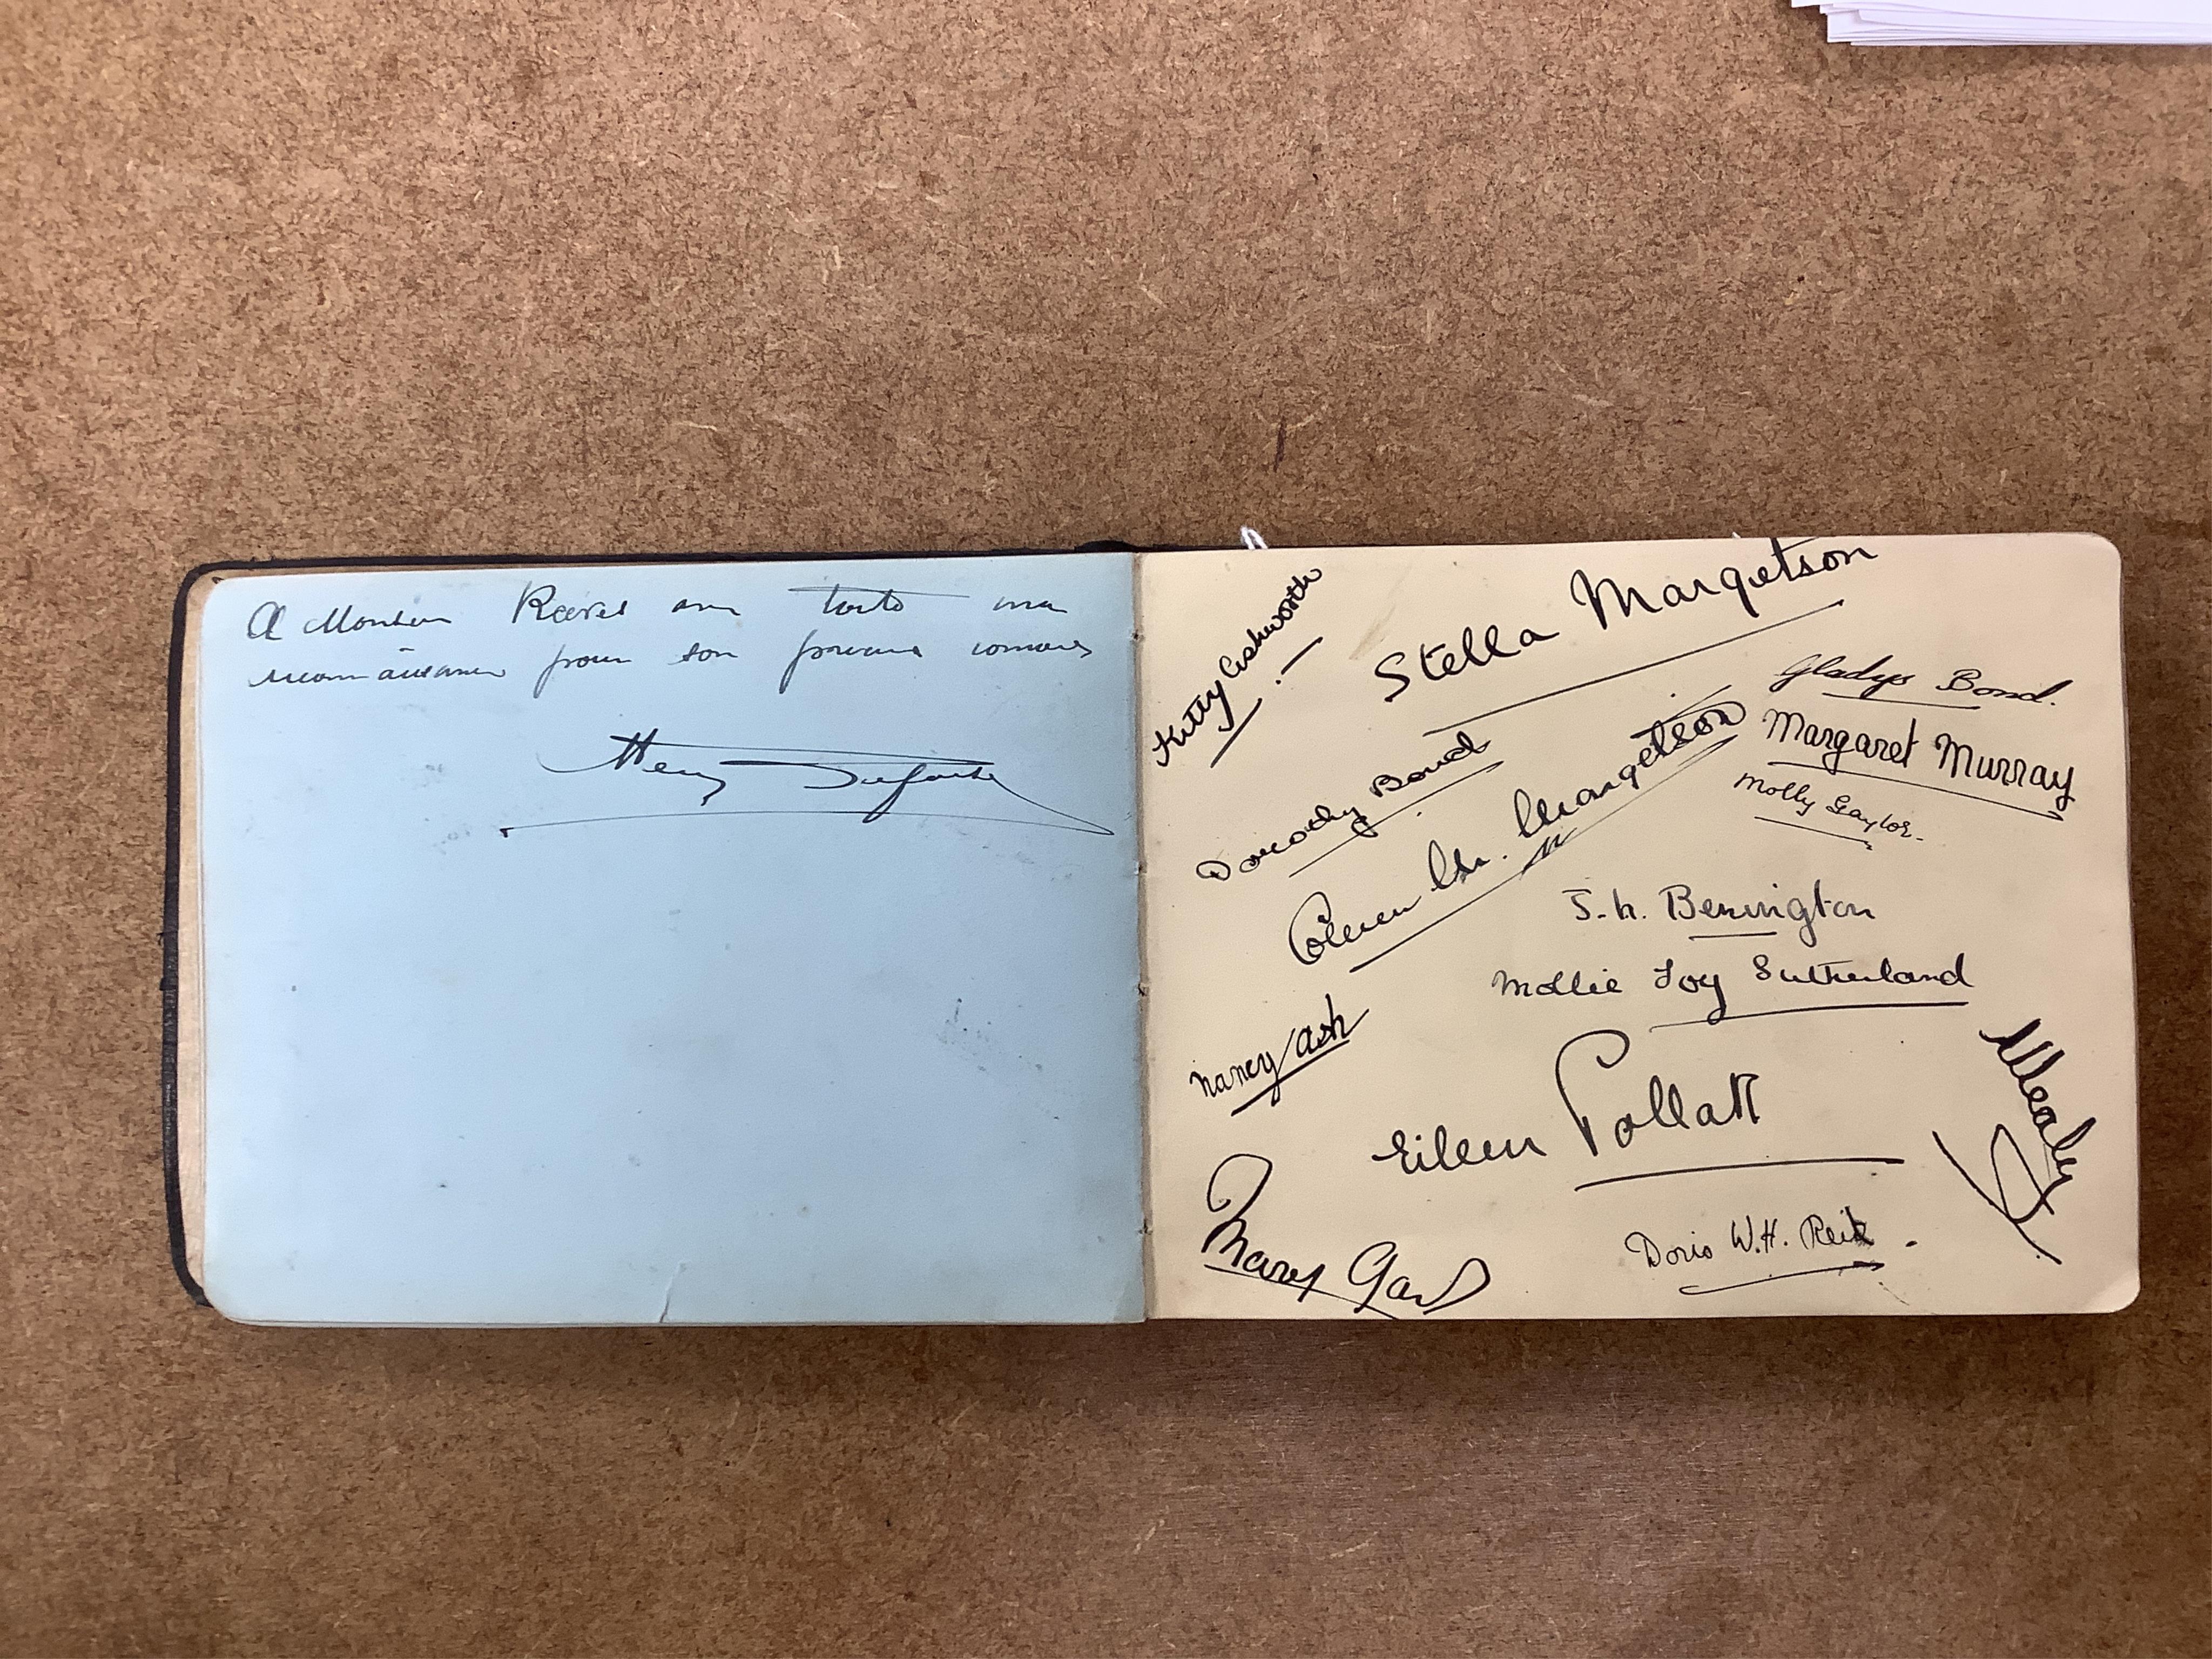 A Monsieur Reeves avec toute ma
reconnaissance pour son précieux concours
Henry
Kitty Ashworth
Stella Margetson
Gladys Bond.
Margaret Murray
Molly Gaylor.
Dorothy Bond
Margetson
J. h. Benington
Mollie Joy Sutherland
Nancy Ash
Eileen Pollatt
Mary Gard
Doris W.H. Reid.